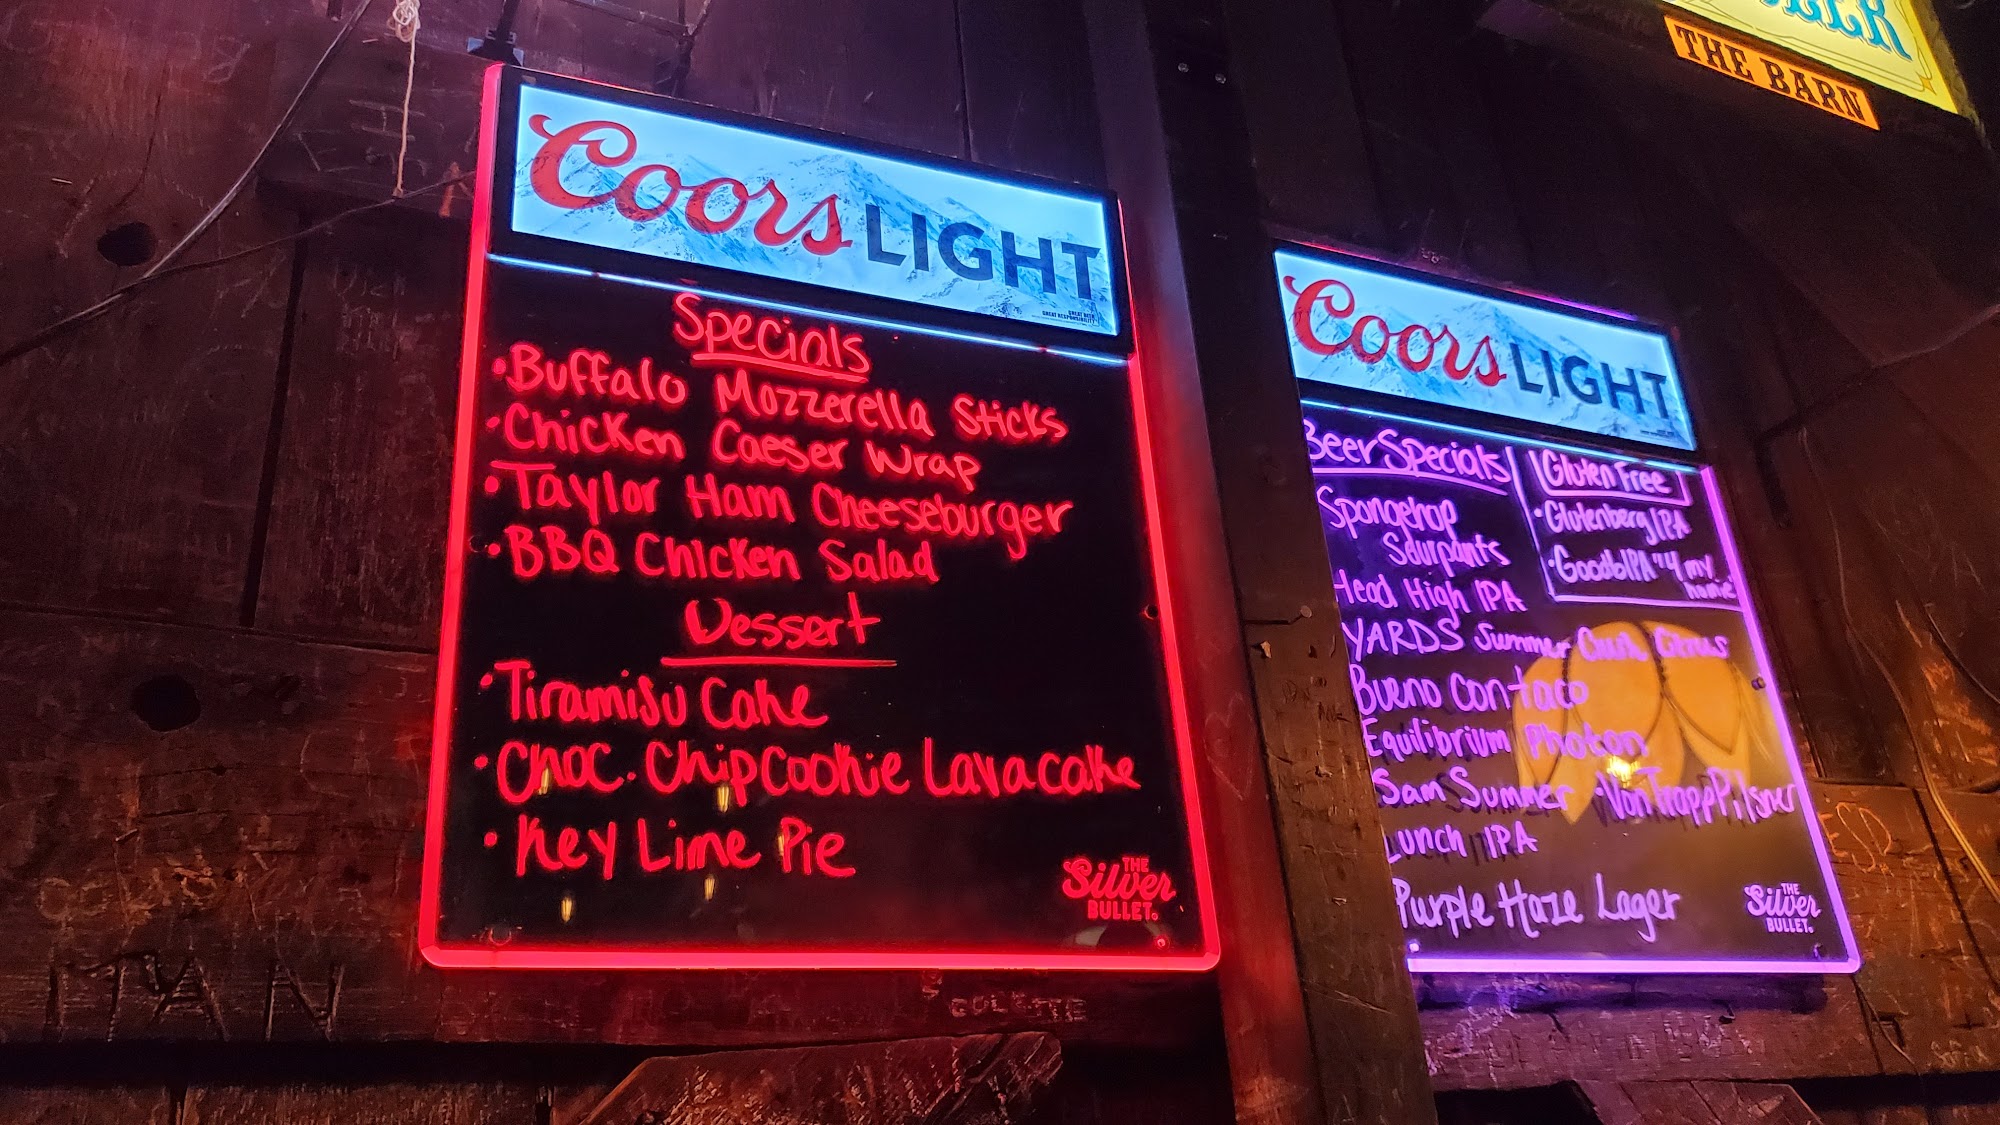 Coors LIGHT
Specials
•Buffalo Mozzerella Sticks
•Chicken Caeser Wrap
•Taylor Ham Cheeseburger
•BBQ Chicken Salad
Dessert
•Tiramisu Cake
•Choc. Chip Cookie Lava cake
•Key Lime Pie
THE
Silver
BULLET.
Coors LIGHT
Beer Specials
Spongehop
Sourpants
Head High IPA
YARDS Summer Crush Citrus
Bueno Contaco
Equilibrium Photon
Sam Summer •Von Trapp Pilsner
Lunch IPA
Purple Haze Lager
Gluten Free
•Glutenberg IPA
•GoodbIPA "4 my
home"
THE
Silver
BULLET.
THE BARN
ITAN